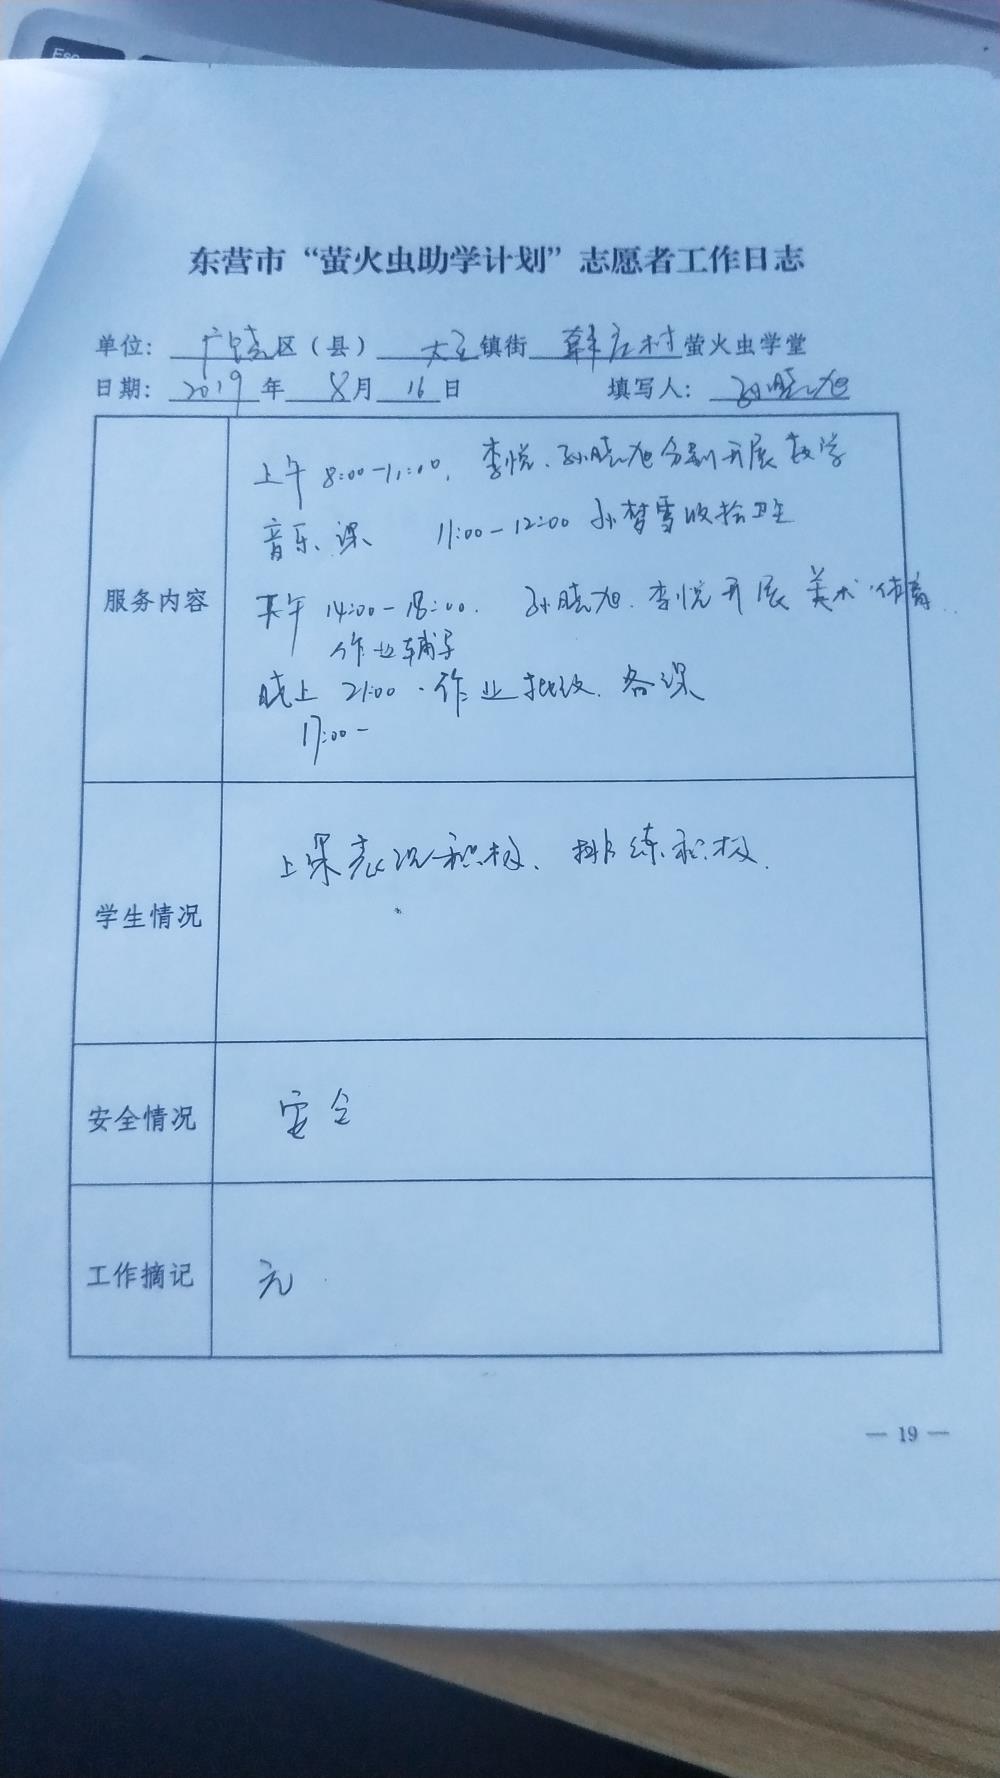 Esc
东营市“萤火虫助学计划”志愿者工作日志
单位: 广饶区(县) 大王镇街 韩庄村萤火虫学堂
日期: 2019年 8月 16日 填写人: 孙晓旭
上午 8:00-11:00, 李悦、孙晓旭分别开展数学
音乐课 11:00-12:00 孙梦雪收拾卫生
服务内容
下午 14:00-18:00. 孙晓旭、李悦开展 美术 体育
作业辅导
晚上 21:00 作业批改. 备课
17:00-
上课表现积极、排练积极.
学生情况
安全情况 安全
工作摘记 无
— 19 —